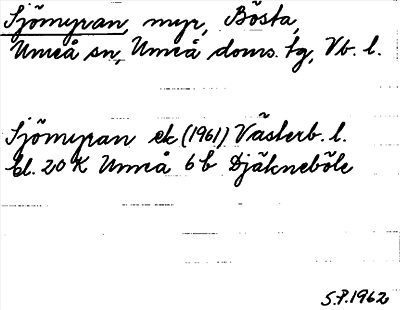 Sjömyran, myr, Bösta,
Umeå sn, Umeå doms. tg, Vb. l.
Sjömyran ek (1961) Västerb. l.
bl. 20 K Umeå 6 b Djäkneböle
S.P. 1962